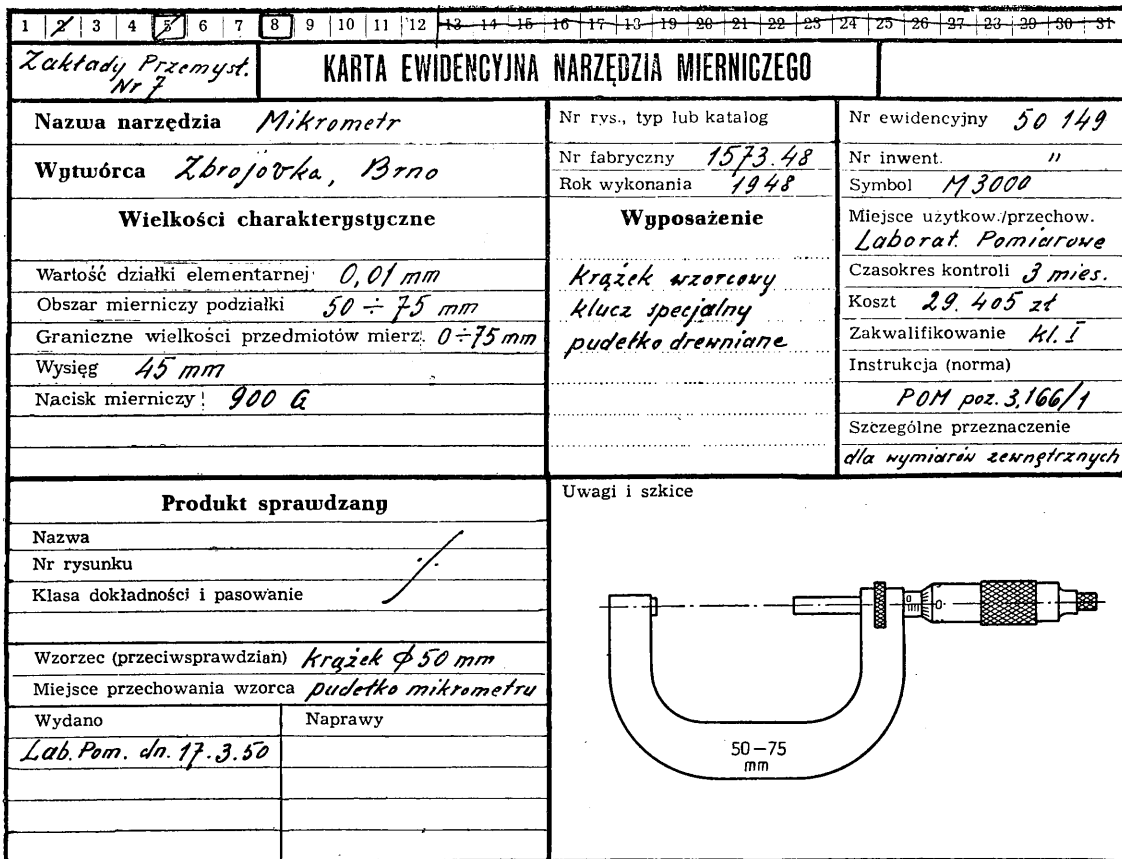 1 2 3 4 5 6 7 8 9 10 11 12 13 14 15 16 17 13 19 20 21 22 23 24 25 26 27 23 29 30 31
Zakłady Przemysł.
Nr 7
KARTA EWIDENCYJNA NARZĘDZIA MIERNICZEGO
Nazwa narzędzia Mikrometr
Wytwórca Zbrojovka, Brno
Wielkości charakterystyczne
Wartość działki elementarnej 0,01 mm
Obszar mierniczy podziałki 50 ÷ 75 mm
Graniczne wielkości przedmiotów mierz. 0÷75 mm
Wysięg 45 mm
Nacisk mierniczy 900 G
Nr rys., typ lub katalog
Nr fabryczny 1573.48
Rok wykonania 1948
Wyposażenie
krążek wzorcowy
klucz specjalny
pudełko drewniane
Nr ewidencyjny 50 149
Nr inwent. "
Symbol M 3000
Miejsce użytkow./przechow.
Laborat. Pomiarowe
Czasokres kontroli 3 mies.
Koszt 29.405 zł
Zakwalifikowanie kl. I
Instrukcja (norma)
POM poz. 3,166/1
Szczególne przeznaczenie
dla wymiarów zewnętrznych
Produkt sprawdzany
Nazwa
Nr rysunku
Klasa dokładności i pasowanie
Wzorzec (przeciwsprawdzian) krążek ϕ 50 mm
Miejsce przechowania wzorca pudełko mikrometru
Wydano
Lab. Pom. dn. 17.3.50
Naprawy
Uwagi i szkice
0 0
50-75
mm